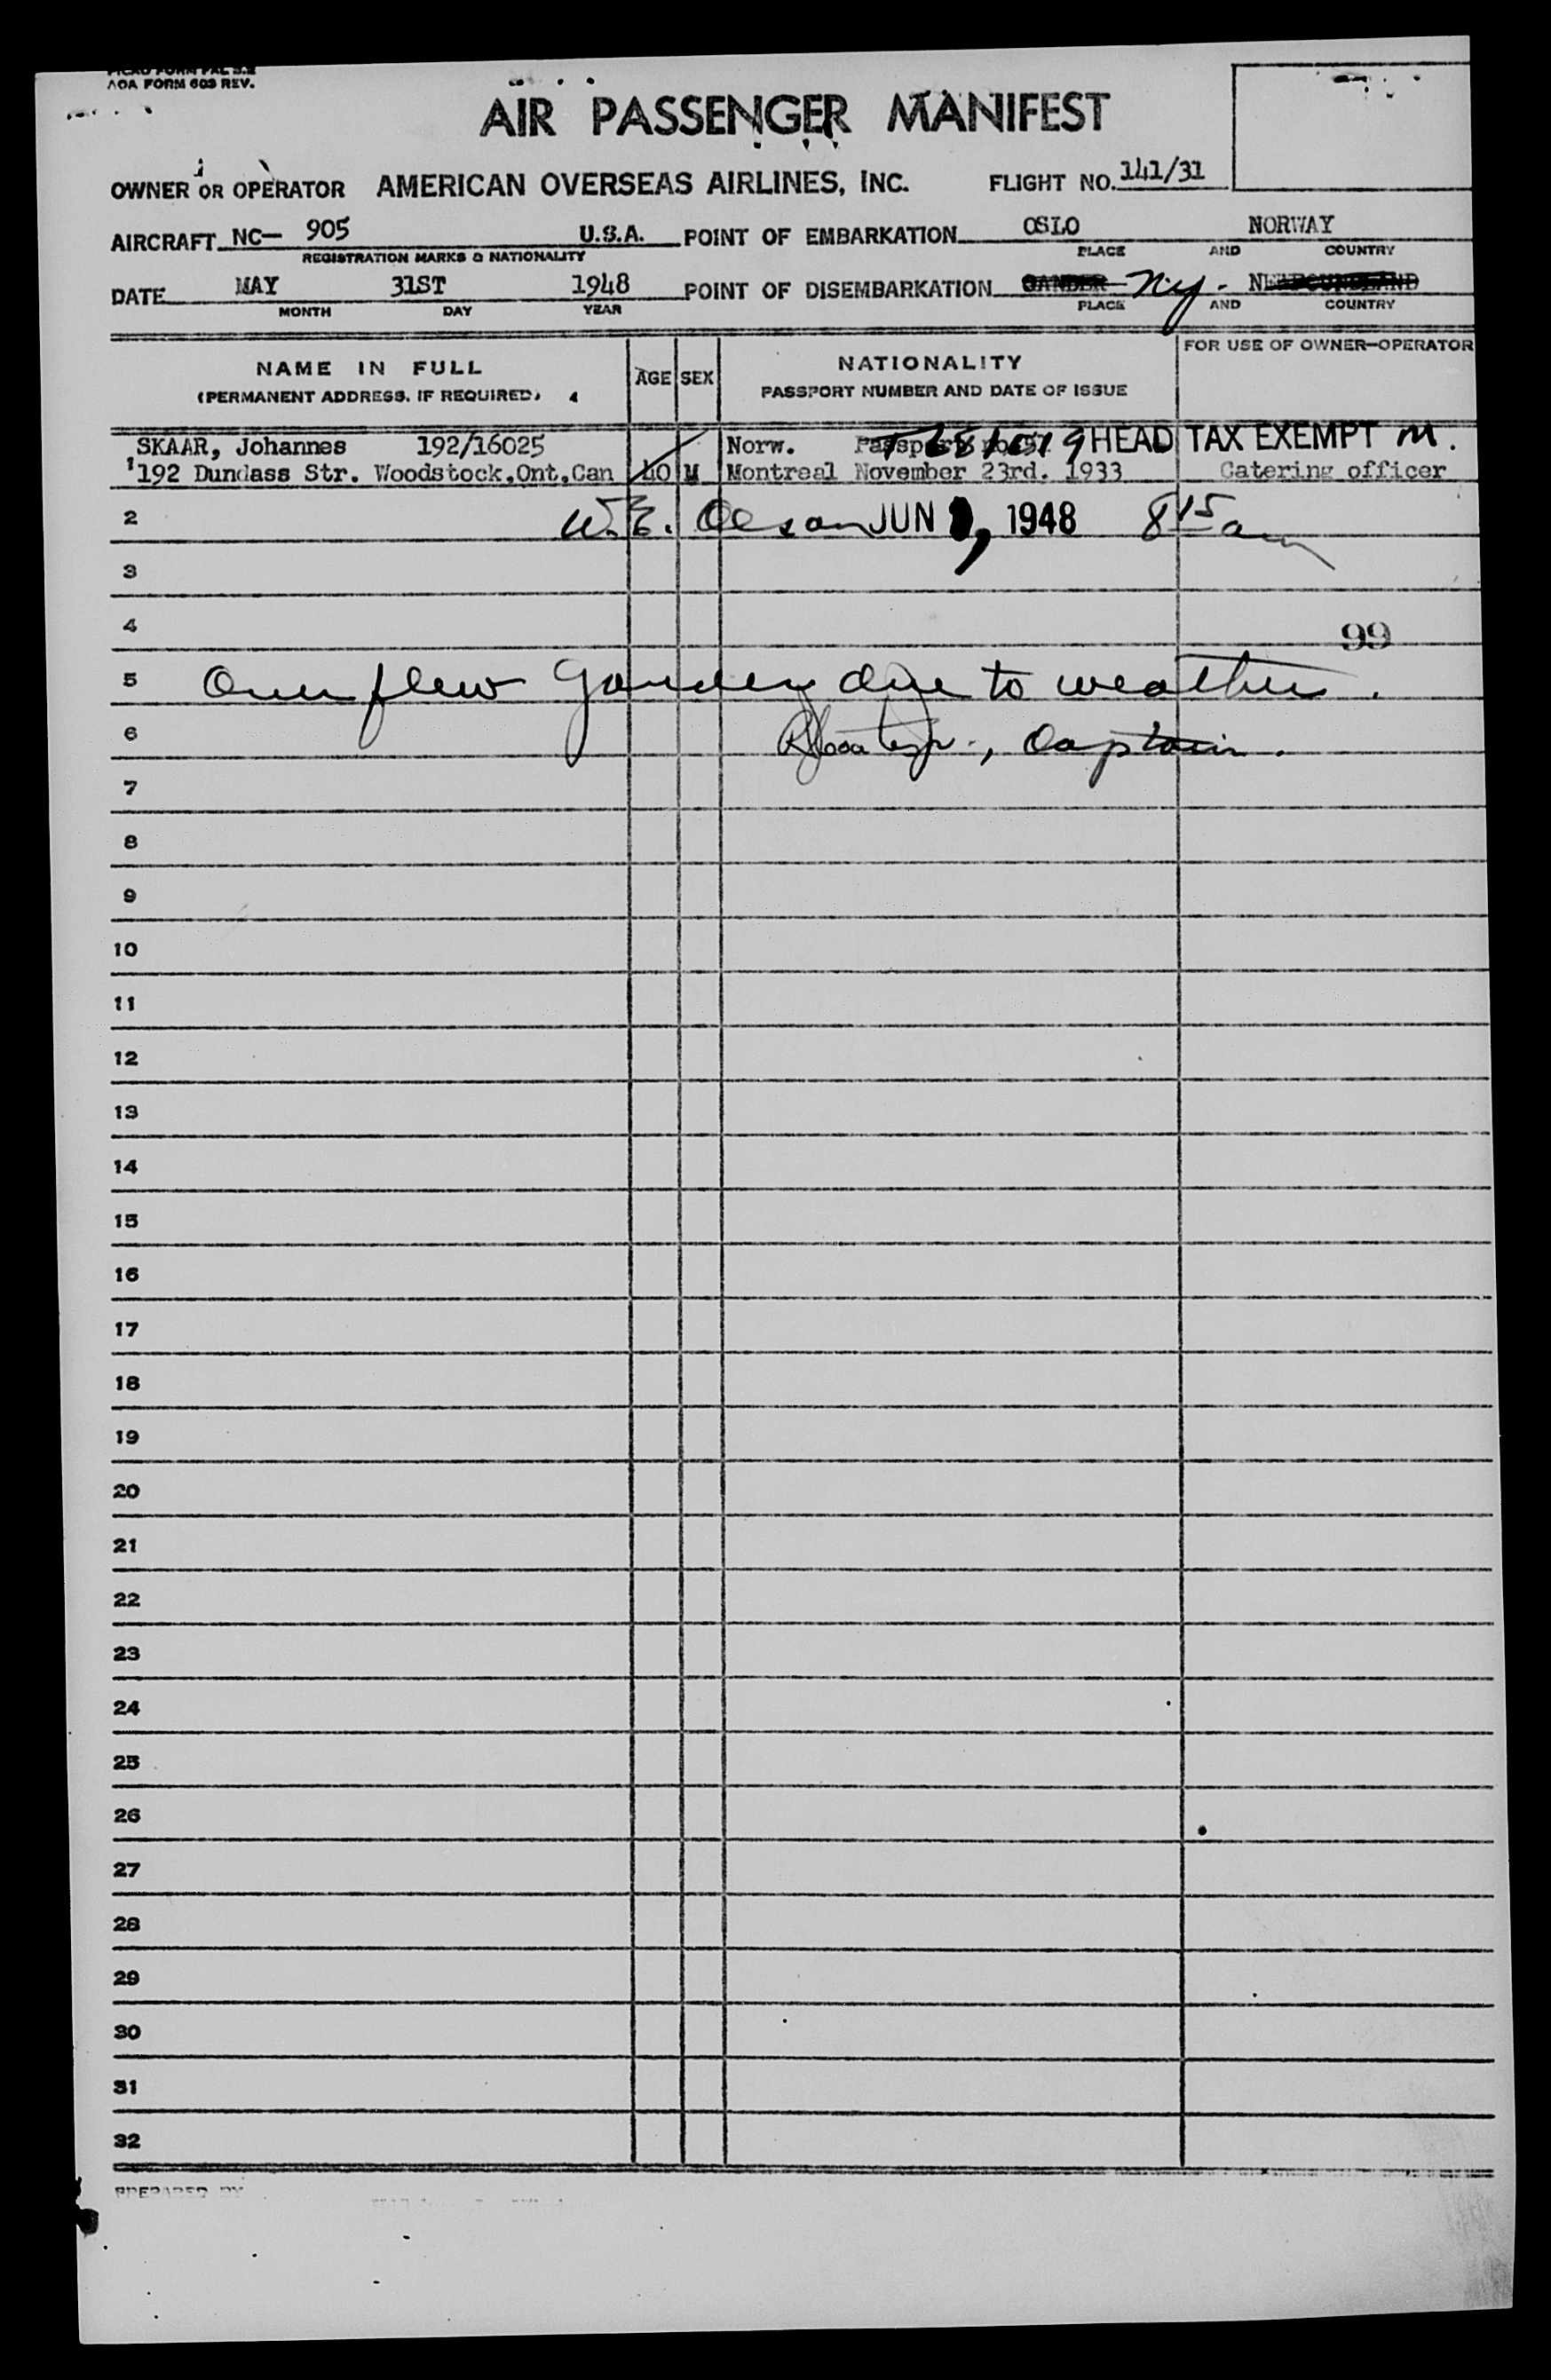 AOA FORM 603 REV.
AIR PASSENGER MANIFEST
OWNER OR OPERATOR AMERICAN OVERSEAS AIRLINES, INC. FLIGHT NO. 141/31
AIRCRAFT NC- 905 U.S.A. POINT OF EMBARKATION OSLO NORWAY
REGISTRATION MARKS & NATIONALITY PLACE AND COUNTRY
DATE MAY 31ST 1948 POINT OF DISEMBARKATION GANDER Ny. NEWFOUNDLAND
MONTH DAY YEAR PLACE AND COUNTRY
NAME IN FULL AGE SEX NATIONALITY FOR USE OF OWNER-OPERATOR
(PERMANENT ADDRESS, IF REQUIRED) PASSPORT NUMBER AND DATE OF ISSUE
SKAAR, Johannes 192/16025 Norw. Passport HEAD TAX EXEMPT M.
1 192 Dundass Str. Woodstock,Ont,Can 40 M Montreal November 23rd. 1933 Catering officer
2 W.E. Olson JUN 1948 8 15 am
3
4 99
5 Over flew Gander due to weather.
6 Captain.
7
8
9
10
11
12
13
14
15
16
17
18
19
20
21
22
23
24
25
26
27
28
29
30
31
32
PREPARED BY